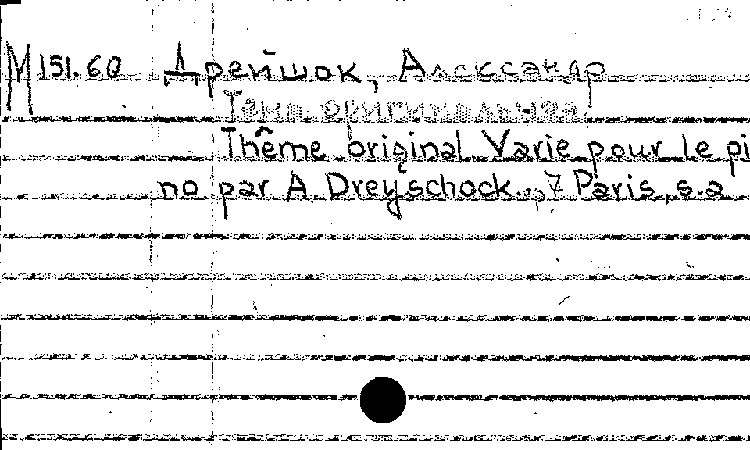 M 151.60 Дрейшок, Александр
Thême original Varie pour le pi
no par A. Dreyschock. 7 Paris, s.a